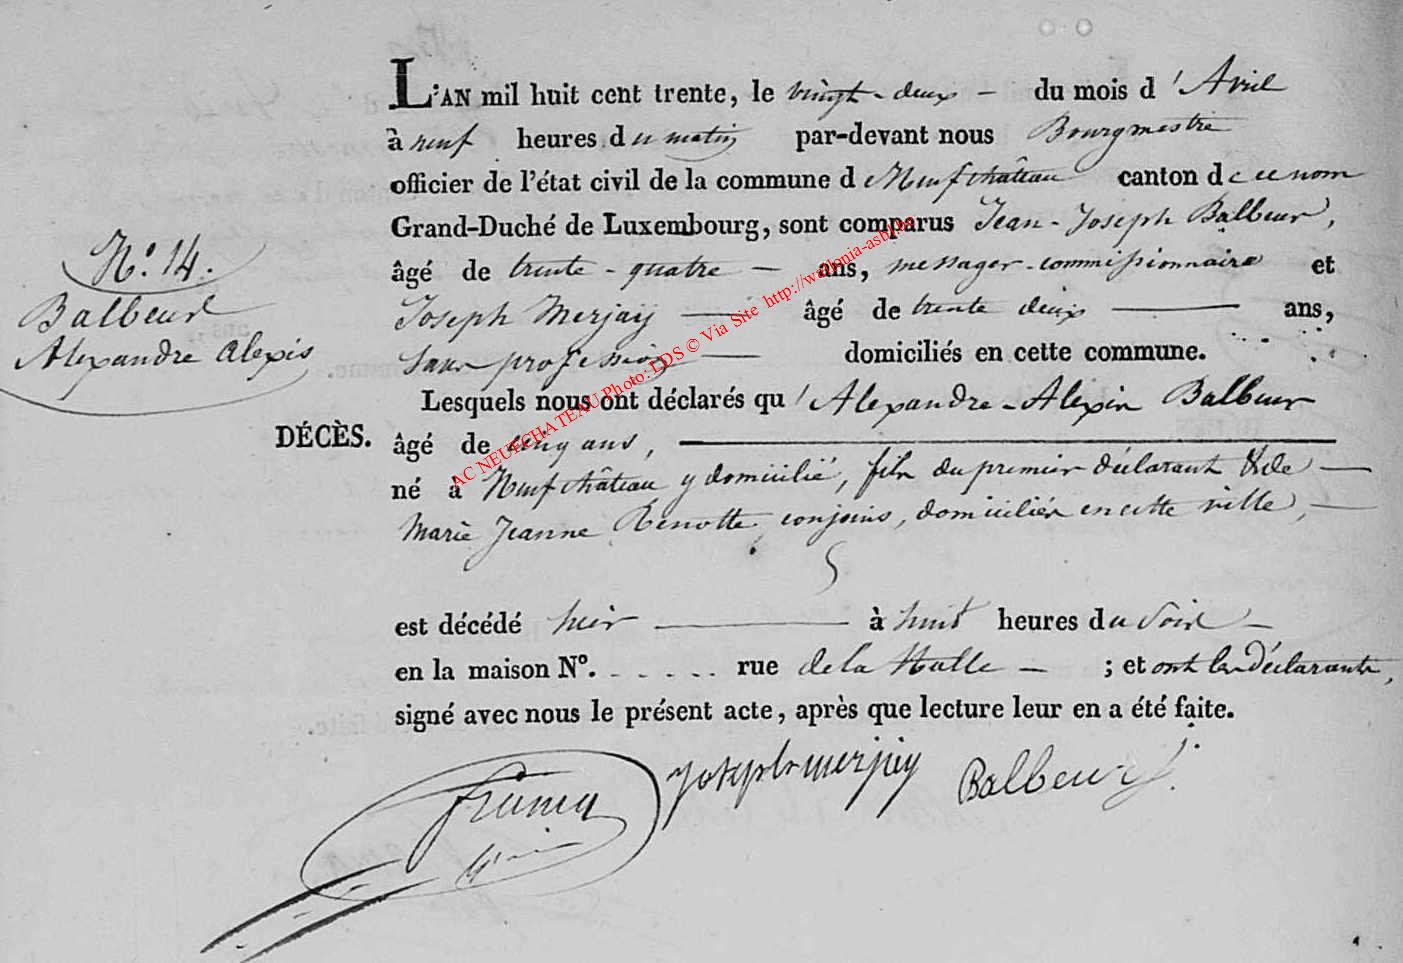 L'AN mil huit cent trente, le vingt-deux du mois d'Avril
à neuf heures du matin par-devant nous Bourgmestre
officier de l'état civil de la commune de Neufchâteau canton de ce nom
Grand-Duché de Luxembourg, sont comparus Jean-Joseph Balbeur,
N.o 14.
âgé de trente-quatre ans, messager-commissionnaire et
Balbeur
Joseph Merjaÿ âgé de trente deux ans,
Alexandre Alexis
sans profession domiciliés en cette commune.
Lesquels nous ont déclarés qu'Alexandre-Alexis Balbeur
DÉCÈS.
âgé de cinq ans,
né à Neufchâteau y domicilié, fils du premier déclarant & de
Marie Jeanne Renotte, conjoins, domiciliés en cette ville,
est décédé hier à huit heures du soir
en la maison N°. . . . . . rue de la Halle ; et ont les déclarants,
signé avec nous le présent acte, après que lecture leur en a été faite.
Joseph merjay Balbeur
AC NEUFCHATEAU Photo: LDS © Via Site http://wallonia-asbl.be